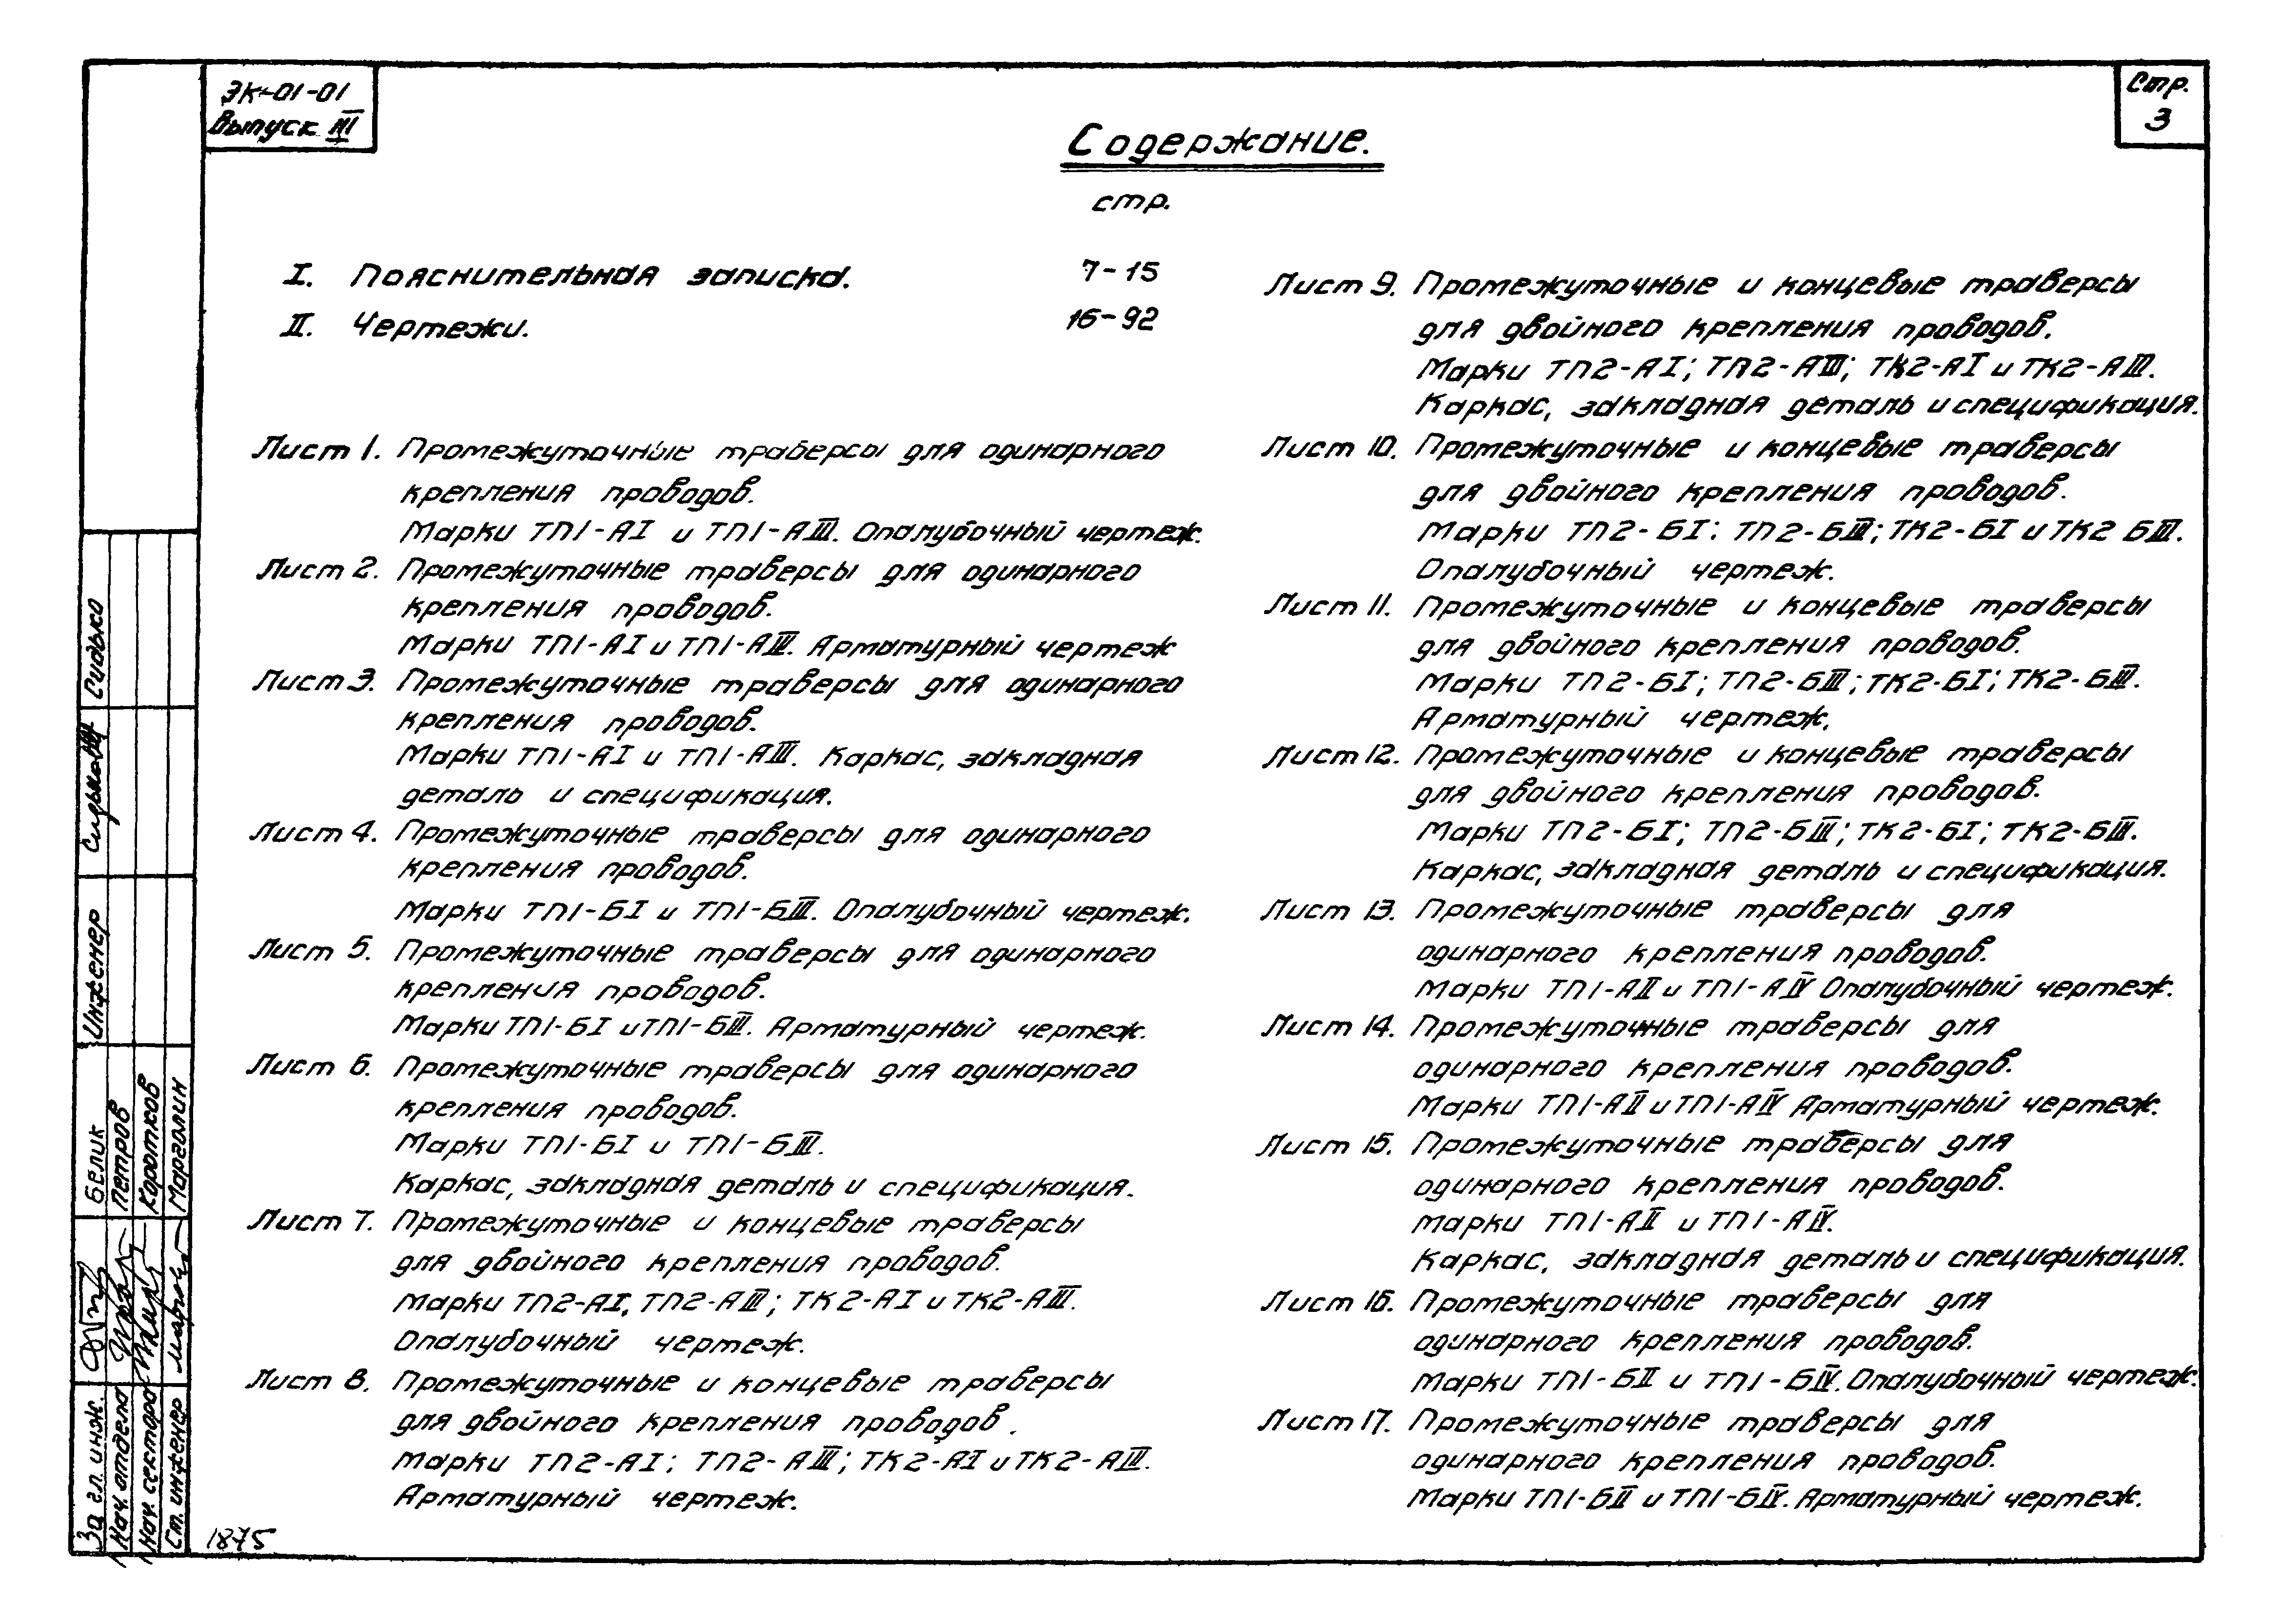 ЭК-01-01
Выпуск III
Стр.
3
Содержание.
стр.
I. Пояснительная записка. 7-15
II. Чертежи. 16-92
Лист 1. Промежуточные траверсы для одинарного
крепления проводов.
Марки ТП1-АI и ТП1-АIII. Опалубочный чертеж.
Лист 2. Промежуточные траверсы для одинарного
крепления проводов.
Марки ТП1-АI и ТП1-АIII. Арматурный чертеж
Лист 3. Промежуточные траверсы для одинарного
крепления проводов.
Марки ТП1-АI и ТП1-АIII. Каркас, закладная
деталь и спецификация.
Лист 4. Промежуточные траверсы для одинарного
крепления проводов.
Марки ТП1-БI и ТП1-БIII. Опалубочный чертеж.
Лист 5. Промежуточные траверсы для одинарного
крепления проводов.
Марки ТП1-БI и ТП1-БIII. Арматурный чертеж.
Лист 6. Промежуточные траверсы для одинарного
крепления проводов.
Марки ТП1-БI и ТП1-БIII.
Каркас, закладная деталь и спецификация.
Лист 7. Промежуточные и концевые траверсы
для двойного крепления проводов.
Марки ТП2-АI, ТП2-АIII; ТК2-АI и ТК2-АIII.
Опалубочный чертеж.
Лист 8. Промежуточные и концевые траверсы
для двойного крепления проводов.
Марки ТП2-АI; ТП2-АIII; ТК2-АI и ТК2-АIII.
Арматурный чертеж.
Лист 9. Промежуточные и концевые траверсы
для двойного крепления проводов.
Марки ТП2-АI; ТП2-АIII; ТК2-АI и ТК2-АIII.
Каркас, закладная деталь и спецификация.
Лист 10. Промежуточные и концевые траверсы
для двойного крепления проводов.
Марки ТП2-БI; ТП2-БIII; ТК2-БI и ТК2 БIII.
Опалубочный чертеж.
Лист 11. Промежуточные и концевые траверсы
для двойного крепления проводов.
Марки ТП2-БI; ТП2-БIII; ТК2-БI; ТК2-БIII.
Арматурный чертеж.
Лист 12. Промежуточные и концевые траверсы
для двойного крепления проводов.
Марки ТП2-БI; ТП2-БIII; ТК2-БI; ТК2-БIII.
Каркас, закладная деталь и спецификация.
Лист 13. Промежуточные траверсы для
одинарного крепления проводов.
Марки ТП1-АII и ТП1-АIV Опалубочный чертеж.
Лист 14. Промежуточные траверсы для
одинарного крепления проводов.
Марки ТП1-АII и ТП1-АIV Арматурный чертеж.
Лист 15. Промежуточные траверсы для
одинарного крепления проводов.
Марки ТП1-АII и ТП1-АIV.
Каркас, закладная деталь и спецификация.
Лист 16. Промежуточные траверсы для
одинарного крепления проводов.
Марки ТП1-БII и ТП1-БIV. Опалубочный чертеж.
Лист 17. Промежуточные траверсы для
одинарного крепления проводов.
Марки ТП1-БII и ТП1-БIV. Арматурный чертеж.
Инженер Сидько
За гл. инж. Белик
Нач. отдела Петров
Нач. сектора Коротков
Ст. инженер Марголин
1875